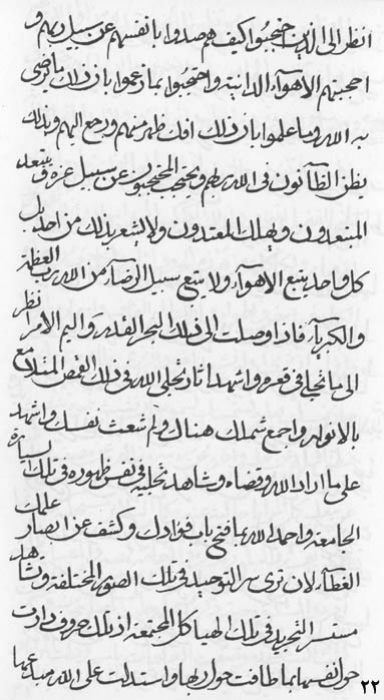 انظر الی الذین احتجبوا کیف هم صدوا بانفسهم عن سبیل ربهم و
احجبتهم الاهوآء الدانیة واحتجبوا بما زعموا بان ذلک یرضی
به الله وما علموا بان ذلک افک ظهر منهم ورجع الیهم وبذلک
یظن الظآنون فی الله ربهم ویحتجب المحتجبون عن سبیل عزه و یبتعد
المبتعدون ویهلک المعتدون ولا یشعر بذلک من احد بل
کل واحد یتبع الاهوآء ولا یتبع سبیل الرضآء من الله رب العظمة
والکبریآء فاذا وصلت الی ذلک البحر القدیر والیم الامر انظر
الی ما تجلی فی قعره واشهد آثار تجلی الله فی ذلک القمص المتلامع
بالانوار واجمع شملک هناک ولم شعث نفسک واشهد
علی ما اراد الله وقضاه وشاهد تجلیه فی نفس ظهوره فی تلک السیارة
الجامعة واحمد الله بما فتح باب فؤادک وکشف عن ابصار علمک
الغطآء لان تری سر التوحید فی تلک الصور المختلفة وتشاهد
مستسر التجرید فی تلک الهیاکل المجتمعة اذ تلک حروف دارت
حول نفسها بما طافت حول ربها واستدلت علی الله مبدعها
۲۲